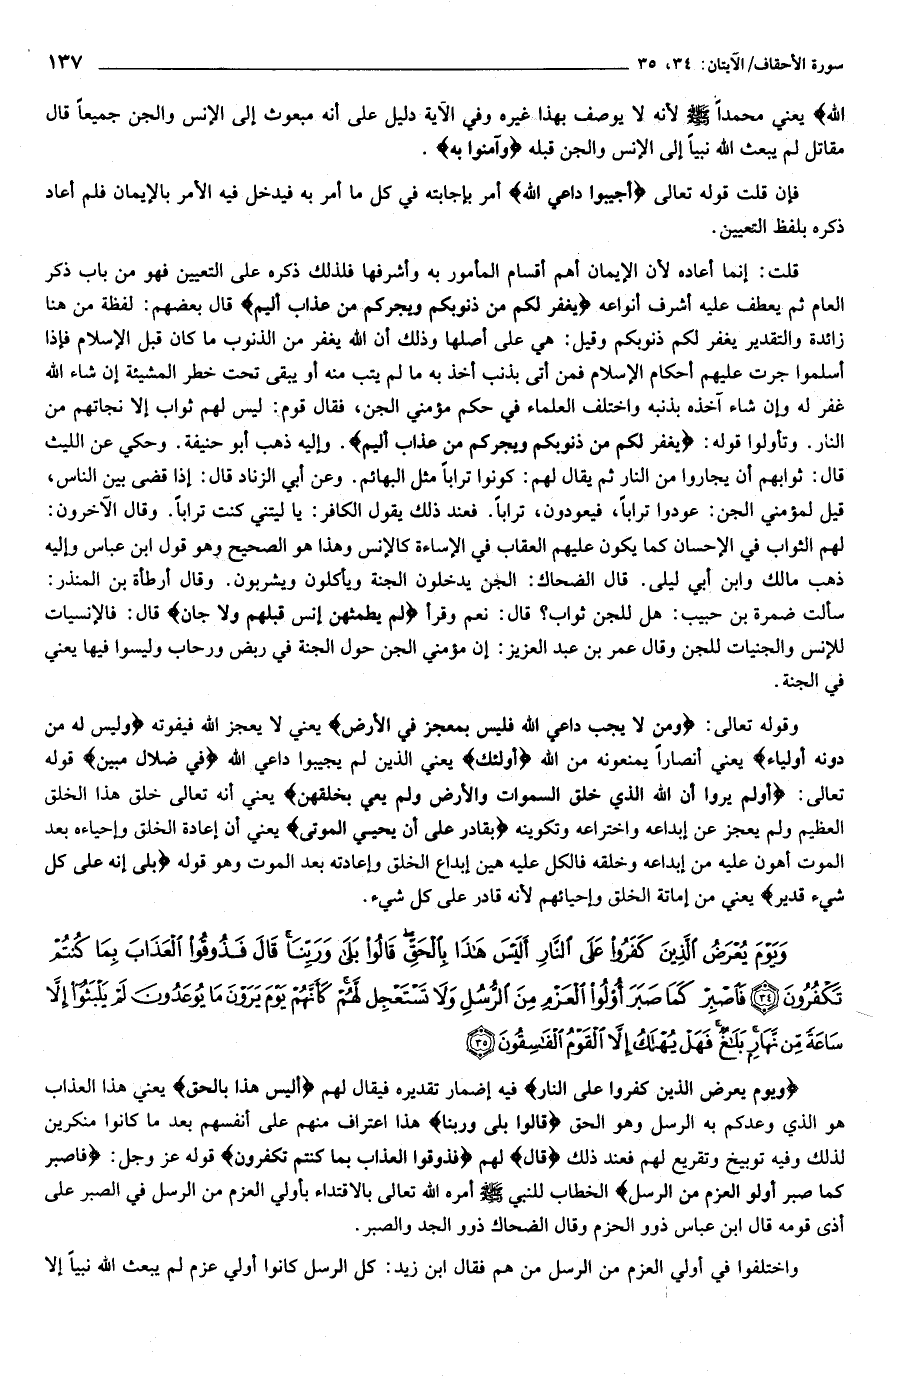 سورة الأحقاف/ الآيتان: ٣٤، ٣٥ ١٣٧
الله﴾ يعني محمداً ﷺ لأنه لا يوصف بهذا غيره وفي الآية دليل على أنه مبعوث إلى الإنس والجن جميعاً قال
مقاتل لم يبعث الله نبياً إلى الإنس والجن قبله ﴿وآمنوا به﴾ .
فإن قلت قوله تعالى ﴿أجيبوا داعي الله﴾ أمر بإجابته في كل ما أمر به فيدخل فيه الأمر بالإيمان فلم أعاد
ذكره بلفظ التعيين.
قلت: إنما أعاده لأن الإيمان أهم أقسام المأمور به وأشرفها فلذلك ذكره على التعيين فهو من باب ذكر
العام ثم يعطف عليه أشرف أنواعه ﴿يغفر لكم من ذنوبكم ويجركم من عذاب أليم﴾ قال بعضهم: لفظة من هنا
زائدة والتقدير يغفر لكم ذنوبكم وقيل: هي على أصلها وذلك أن الله يغفر من الذنوب ما كان قبل الإسلام فإذا
أسلموا جرت عليهم أحكام الإسلام فمن أتى بذنب أخذ به ما لم يتب منه أو يبقى تحت خطر المشيئة إن شاء الله
غفر له وإن شاء آخذه بذنبه واختلف العلماء في حكم مؤمني الجن، فقال قوم: ليس لهم ثواب إلا نجاتهم من
النار. وتأولوا قوله: ﴿يغفر لكم من ذنوبكم ويجركم من عذاب أليم﴾. وإليه ذهب أبو حنيفة. وحكي عن الليث
قال: ثوابهم أن يجاروا من النار ثم يقال لهم: كونوا تراباً مثل البهائم. وعن أبي الزناد قال: إذا قضى بين الناس،
قيل لمؤمني الجن: عودوا تراباً، فيعودون، تراباً. فعند ذلك يقول الكافر: يا ليتني كنت تراباً. وقال الآخرون:
لهم الثواب في الإحسان كما يكون عليهم العقاب في الإساءة كالإنس وهذا هو الصحيح وهو قول ابن عباس وإليه
ذهب مالك وابن أبي ليلى. قال الضحاك: الجن يدخلون الجنة ويأكلون ويشربون. وقال أرطأة بن المنذر:
سألت ضمرة بن حبيب: هل للجن ثواب؟ قال: نعم وقرأ ﴿لم يطمثهن إنس قبلهم ولا جان﴾ قال: فالإنسيات
للإنس والجنيات للجن وقال عمر بن عبد العزيز: إن مؤمني الجن حول الجنة في ربض ورحاب وليسوا فيها يعني
في الجنة.
وقوله تعالى: ﴿ومن لا يجب داعي الله فليس بمعجز في الأرض﴾ يعني لا يعجز الله فيفوته ﴿وليس له من
دونه أولياء﴾ يعني أنصاراً يمنعونه من الله ﴿أولئك﴾ يعني الذين لم يجيبوا داعي الله ﴿في ضلال مبين﴾ قوله
تعالى: ﴿أولم يروا أن الله الذي خلق السموات والأرض ولم يعي بخلقهن﴾ يعني أنه تعالى خلق هذا الخلق
العظيم ولم يعجز عن إبداعه واختراعه وتكوينه ﴿بقادر على أن يحيي الموتى﴾ يعني أن إعادة الخلق وإحياءه بعد
الموت أهون عليه من إبداعه وخلقه فالكل عليه هين إبداع الخلق وإعادته بعد الموت وهو قوله ﴿بلى إنه على كل
شيء قدير﴾ يعني من إماتة الخلق وإحيائهم لأنه قادر على كل شيء.
وَيَوْمَ يُعْرَضُ ٱلَّذِينَ كَفَرُواْ عَلَى ٱلنَّارِ أَلَيْسَ هَٰذَا بِٱلْحَقِّ ۖ قَالُواْ بَلَىٰ وَرَبِّنَا ۚ قَالَ فَذُوقُواْ ٱلْعَذَابَ بِمَا كُنتُمْ
تَكْفُرُونَ ﴿٣٤﴾ فَٱصْبِرْ كَمَا صَبَرَ أُوْلُواْ ٱلْعَزْمِ مِنَ ٱلرُّسُلِ وَلَا تَسْتَعْجِل لَّهُمْ ۚ كَأَنَّهُمْ يَوْمَ يَرَوْنَ مَا يُوعَدُونَ لَمْ يَلْبَثُوٓاْ إِلَّا
سَاعَةً مِّن نَّهَارٍۭ ۚ بَلَٰغٌ ۚ فَهَلْ يُهْلَكُ إِلَّا ٱلْقَوْمُ ٱلْفَٰسِقُونَ ﴿٣٥﴾
﴿ويوم يعرض الذين كفروا على النار﴾ فيه إضمار تقديره فيقال لهم ﴿أليس هذا بالحق﴾ يعني هذا العذاب
هو الذي وعدكم به الرسل وهو الحق ﴿قالوا بلى وربنا﴾ هذا اعتراف منهم على أنفسهم بعد ما كانوا منكرين
لذلك وفيه توبيخ وتقريع لهم فعند ذلك ﴿قال﴾ لهم ﴿فذوقوا العذاب بما كنتم تكفرون﴾ قوله عز وجل: ﴿فاصبر
كما صبر أولو العزم من الرسل﴾ الخطاب للنبي ﷺ أمره الله تعالى بالاقتداء بأولي العزم من الرسل في الصبر على
أذى قومه قال ابن عباس ذوو الحزم وقال الضحاك ذوو الجد والصبر.
واختلفوا في أولي العزم من الرسل من هم فقال ابن زيد: كل الرسل كانوا أولي عزم لم يبعث الله نبياً إلا